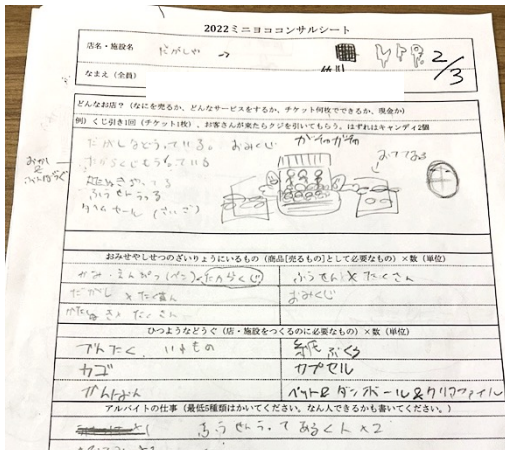 2022ミニヨココンサルシート
店名・施設名 だがしや → 2/3
なまえ（全員）
どんなお店？（なにを売るか、どんなサービスをするか、チケット何枚でできるか、現金か）
例）くじ引き1回（チケット1枚）、お客さんが来たらクジを引いてもらう。はずれはキャンディ2個
だがしなどうっている。 おみくじ ガチャガチャ
たからくじもうっている
ふうせんうる
タイムセール（さいご）
おみせやしせつのざいりょうにいるもの（商品[売るもの]として必要なもの）×数（単位）
かみ・えんぴつ（ペン）・たからくじ ふうせん×たくさん
だがし×たくさん おみくじ
×たくさん
ひつようなどうぐ（店・施設をつくるのに必要なもの）×数（単位）
でんたく、いれもの 紙ぶくろ
カゴ カプセル
かんばん ペット&ダンボール&クリアファイル
アルバイトの仕事（最低5種類はかいてください。なん人できるかも書いてください。）
ふうせんうってあるく人×2